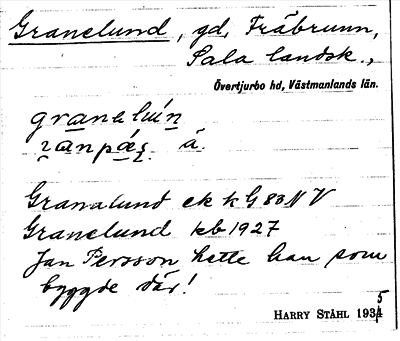 Granelund, gd, Träbrunn,
Sala landsk.,
Övertjurbo hd, Västmanlands län.
granelún
á.
Granalund ek kG 83 NV
Granelund kb 1927
Jan Persson hette han som
byggde där!
HARRY STÅHL 1935